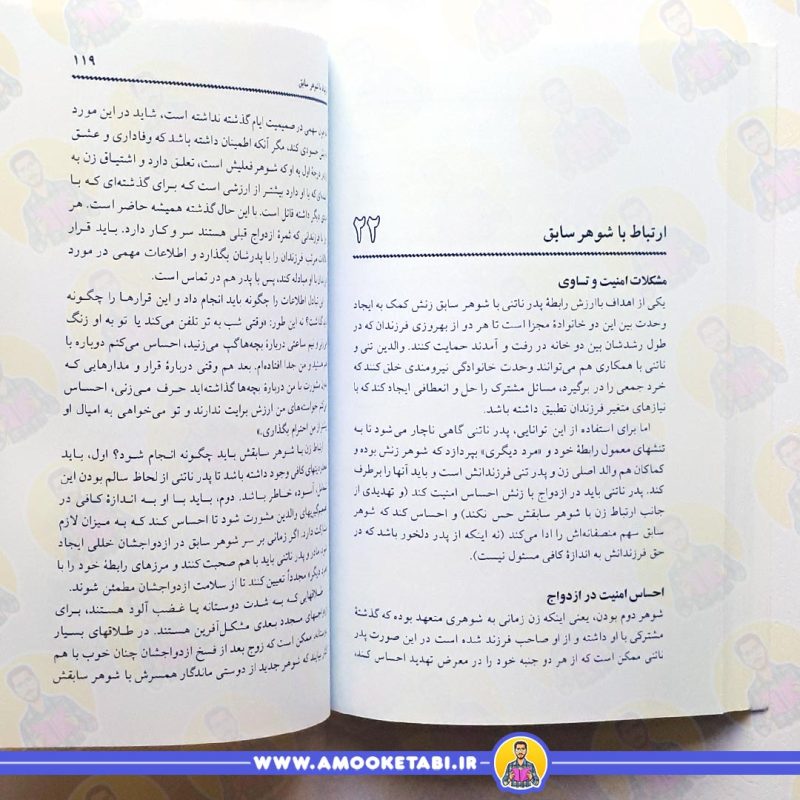 ارتباط با شوهر سابق
۲۲
مشکلات امنیت و تساوی
یکی از اهداف باارزش رابطهٔ پدر ناتنی با شوهر سابق زنش کمک به ایجاد
وحدت بین این دو خانوادهٔ مجزا است تا هر دو از بهروزی فرزندان که در
طول رشدشان بین دو خانه در رفت و آمدند حمایت کنند. والدین تنی و
ناتنی با همکاری هم می‌توانند وحدت خانوادگی نیرومندی خلق کنند که
خرد جمعی را در برگیرد، مسائل مشترک را حل و انعطافی ایجاد کند که با
نیازهای متغیر فرزندان تطبیق داشته باشد.
اما برای استفاده از این توانایی، پدر ناتنی گاهی ناچار می‌شود تا به
تنشهای معمول رابطهٔ خود و «مرد دیگری» بپردازد که شوهر زنش بوده و
کماکان هم والد اصلی زن و پدر تنی فرزندانش است و باید آنها را برطرف
کند. پدر ناتنی باید در ازدواج با زنش احساس امنیت کند (و تهدیدی از
جانب ارتباط زن با شوهر سابقش حس نکند) و احساس کند که شوهر
سابق سهم منصفانه‌اش را ادا می‌کند (نه اینکه از پدر دلخور باشد که در
حق فرزندانش به اندازهٔ کافی مسئول نیست).
احساس امنیت در ازدواج
شوهر دوم بودن، یعنی اینکه زن زمانی به شوهری متعهد بوده که گذشتهٔ
مشترکی با او داشته و از او صاحب فرزند شده است در این صورت پدر
ناتنی ممکن است که از هر دو جنبه خود را در معرض تهدید احساس کند،
۱۱۹
با شوهر سابق
سهمی در صمیمیت ایام گذشته نداشته است، شاید در این مورد
حسودی کند، مگر آنکه اطمینان داشته باشد که وفاداری و عشق
در درجهٔ اول به او که شوهر فعلیش است، تعلق دارد و اشتیاق زن به
که با او دارد بیشتر از ارزشی است که برای گذشته‌ای که با
دیگر داشته قائل است. با این حال گذشته همیشه حاضر است. هر
با فرزندانی که ثمرهٔ ازدواج قبلی هستند سر و کار دارد. باید قرار
مرتب فرزندان را با پدرشان بگذارد و اطلاعات مهمی در مورد
با او مبادله کند، پس با پدر هم در تماس است.
این تبادل اطلاعات را چگونه باید انجام داد و این قرارها را چگونه
گذاشت؟ نه این طور: «وقتی شب به تر تلفن می‌کند یا تو به او زنگ
و نیم ساعتی دربارهٔ بچه‌ها گپ می‌زنید، احساس می‌کنم دوباره با
هستید و من جدا افتاده‌ام. بعد هم وقتی دربارهٔ قرار و مدارهایی که
مشورت با من دربارهٔ بچه‌ها گذاشته‌اید حرف می‌زنی، احساس
خواست‌های من ارزش برایت ندارند و تو می‌خواهی به امیال او
بیشتر از من احترام بگذاری.»
ارتباط زن با شوهر سابقش باید چگونه انجام شود؟ اول، باید
کافی وجود داشته باشد تا پدر ناتنی از لحاظ سالم بودن این
آسوده خاطر باشد. دوم، باید با او به اندازهٔ کافی در
تصمیم‌گیریهای والدین مشورت شود تا احساس کند که به میزان لازم
دارد. اگر زمانی بر سر شوهر سابق در ازدواجشان خللی ایجاد
مادر و پدر ناتنی باید با هم صحبت کنند و مرزهای رابطهٔ خود را با
«مرد دیگر» مجدداً تعیین کنند تا از سلامت ازدواجشان مطمئن شوند.
طلاقهایی که به شدت دوستانه یا غضب آلود هستند، برای
ازدواجهای مجدد بعدی مشکل‌آفرین هستند. در طلاقهای بسیار
دوستانه، ممکن است که زوج بعد از فسخ ازدواجشان چنان خوب با هم
کنار بیایند که شوهر جدید از دوستی ماندگار همسرش با شوهر سابقش
WWW.AMOOKETABI.IR